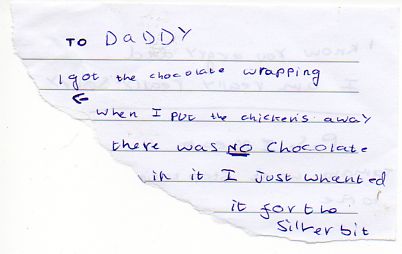 TO DaDDY
I got the chocolate wrapping
←
when I put the chickens away
there was NO chocolate
in it I just whanted
it for the
silver bit